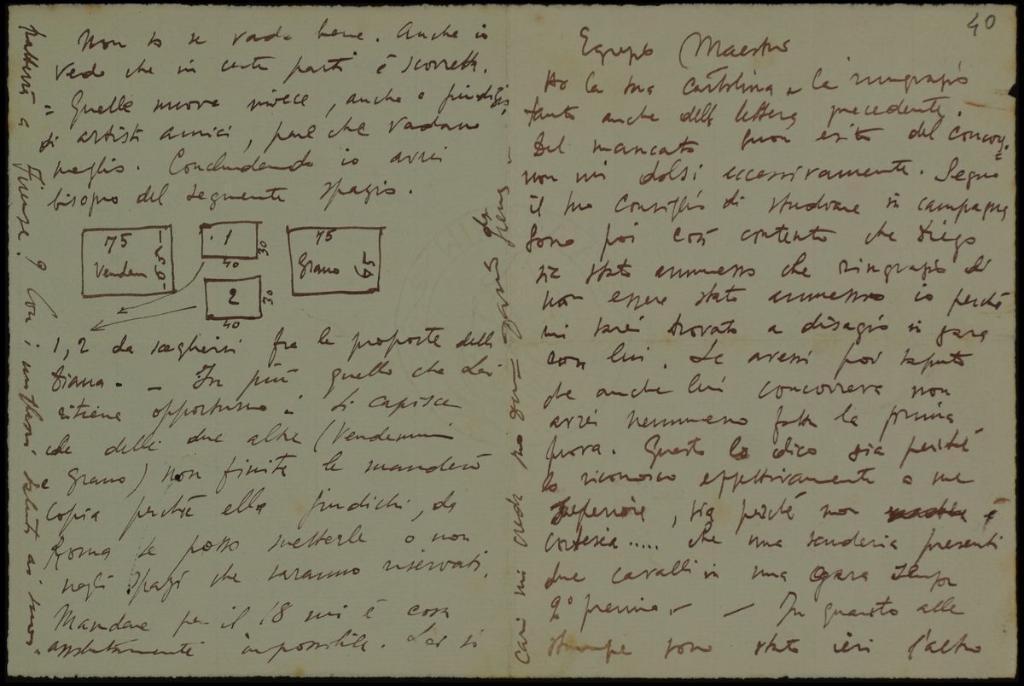 40
Egregio Maestro
Ho la sua cartolina e la ringrazio
tanto anche della lettera precedente.
Del mancato buon esito del concor=
non mi dolsi eccessivamente. Seguo
il suo consiglio di studiare in campagna
Sono poi così contento che Diego
sia stato ammesso che ringrazio di
non essere stato ammesso io perché
mi sarei trovato a disagio in gara
con lui. Se avessi poi saputo
che anche lui concorreva non
avrei nemmeno fatto la prima
prova. Questo lo dico sia perché
lo riconosco effettivamente a me
superiore, sia perché non è
cortesia..... che una scuderia presenti
due cavalli in una gara
premio. — In quanto alle
stampe sono stato ieri l'altro
Non so se vada bene. Anche io
vedo che in certe parti è scorretta.
= Quelle nuove invece, anche a giudizio
di artisti amici, pare che vadano
meglio. Concludendo io avrei
bisogno del seguente spazio.
75
Vendem
1
40
30
2
40
30
75
Grano
54
1, 2 da scegliersi fra le proposte della
Diana. — In più quello che Lei
ritiene opportuno. Si capisce
che delle due altre (Vendemmia
e Grano) non finite le manderò
copia perché ella giudichi, da
Roma se posso metterle o non
negli spazi che saranno riservati.
Mandare per il 18 mi è cosa
assolutamente impossibile. Lei si
a Firenze? Con i saluti ai suoi
cari mi creda suo